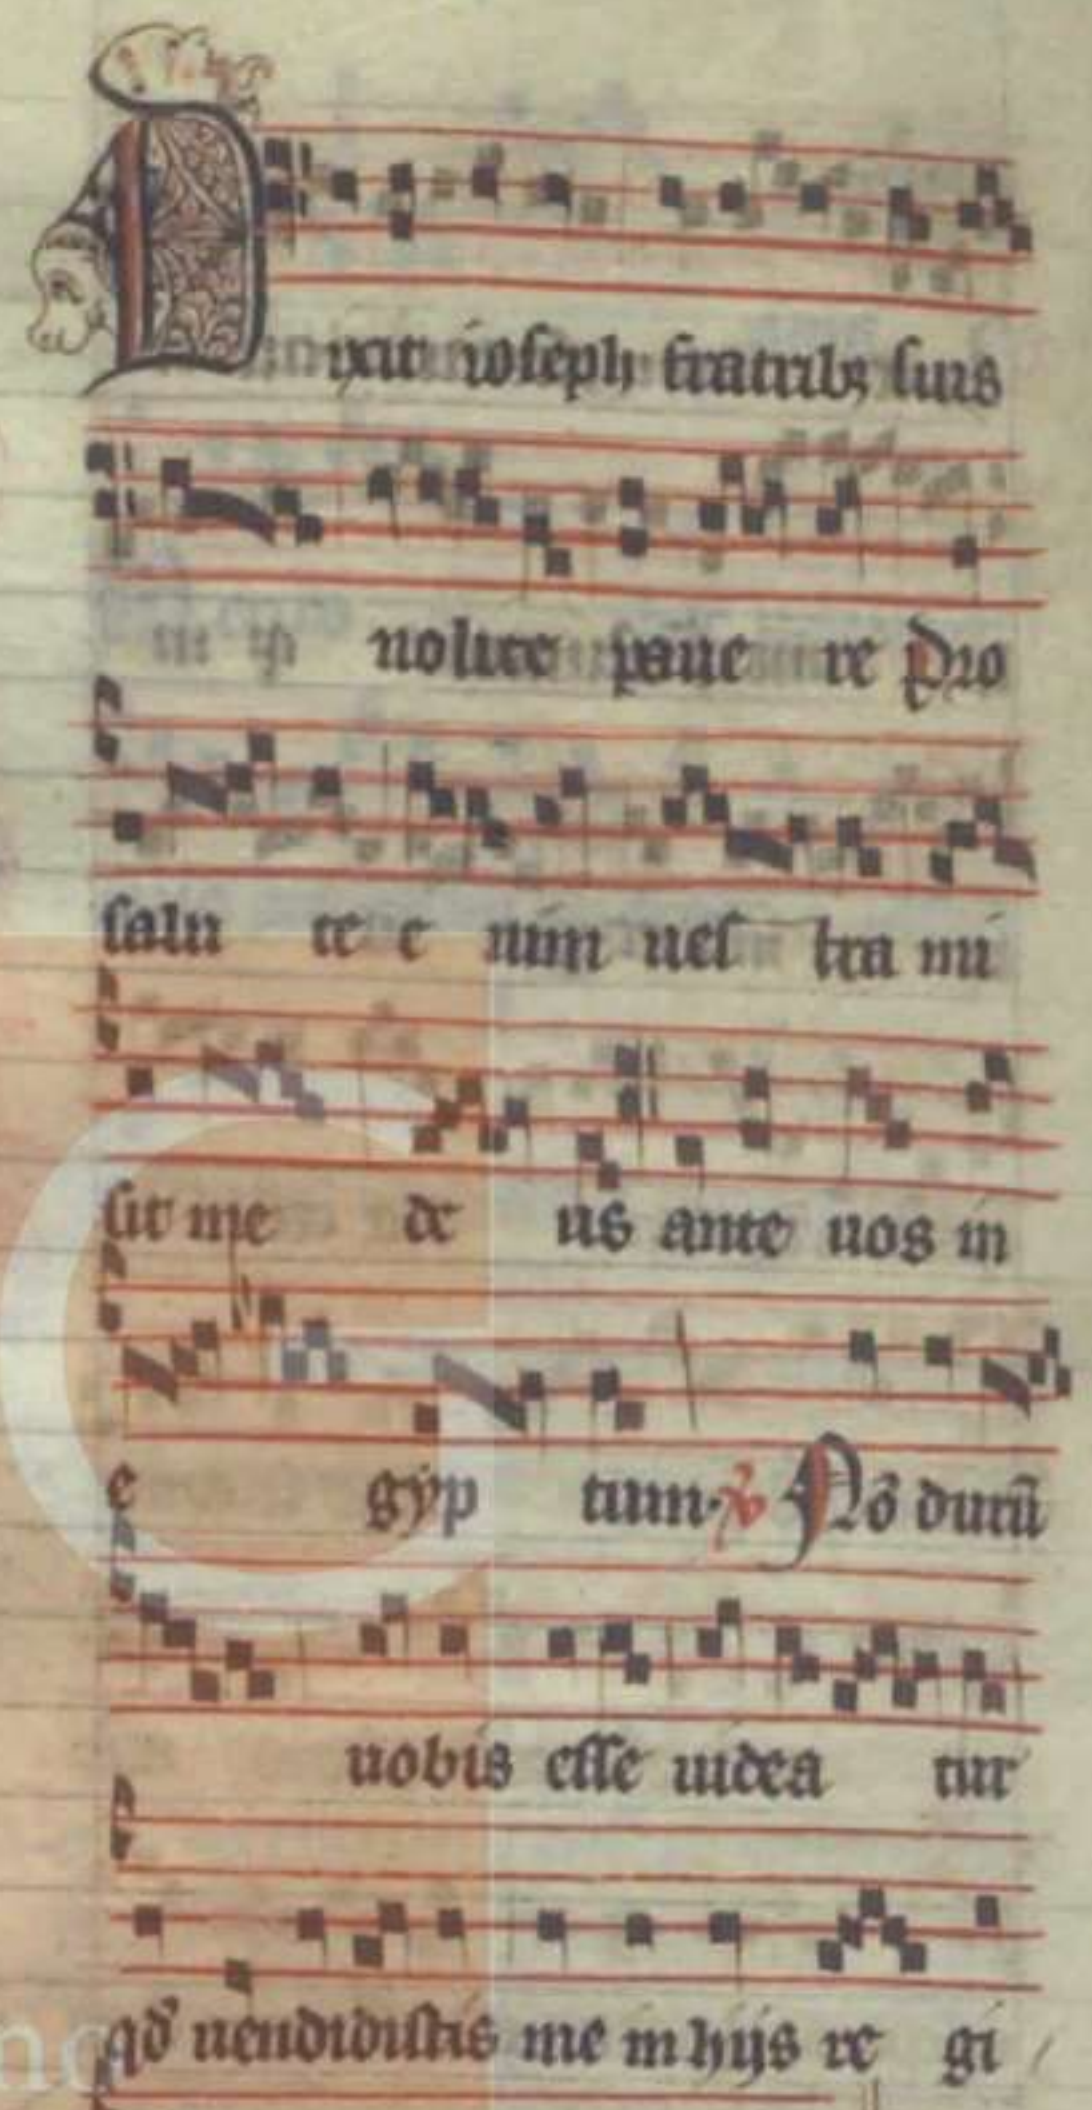 Dixit ioseph fratribꝫ suis
nolite paue re Pro
salu te e nim ues tra mi
sit me de us ante uos in
e gyp tum. ℣ Nō durū
uobis esse uidea tur
qđ uendidistis me in hijs re gi